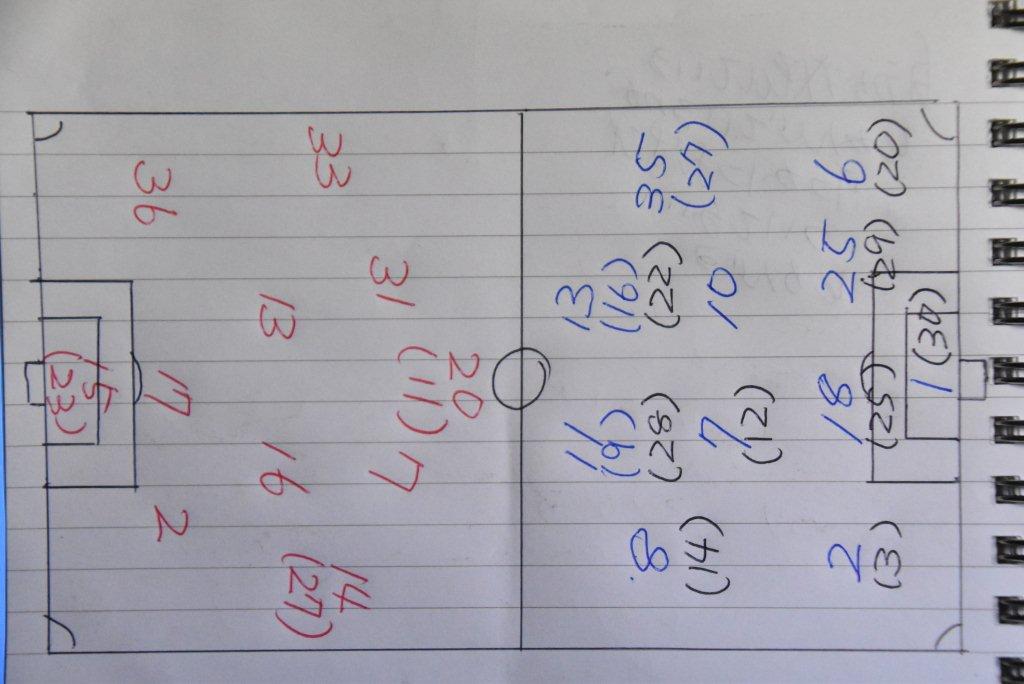 33
36
31
13
20
(11)
15
(23)
17
7
16
2
14
(27)
35
(27)
6
(20)
25
(29)
13
(16)
(22)
10
1 (30)
18
(25)
11
(9)
(28)
7
(12)
8
(14)
2
(3)